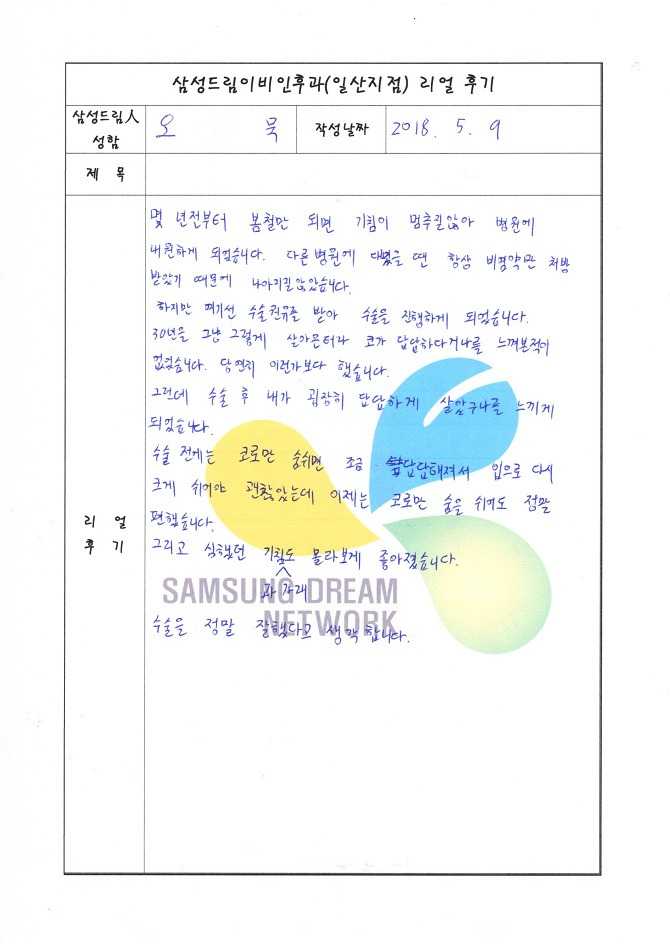 삼성드림이비인후과(일산지점) 리얼 후기
삼성드림人 성함
오 묵
작성날짜
2018. 5. 9
제 목
리 얼 후 기
몇 년전부터 봄철만 되면 기침이 멈추질않아 병원에
내원하게 되었습니다. 다른병원에 다녔을 땐 항상 비염약만 처방
받았기 때문에 나아지질않았습니다.
하지만 여기선 수술권유를 받아 수술을 진행하게 되었습니다.
30년을 그냥 그렇게 살아온터라 코가 답답하다거나를 느껴본적이
없었습니다. 당연히 이런가보다 했습니다.
그런데 수술 후 내가 굉장히 답답하게 살았구나를 느끼게
되었습니다.
수술 전에는 코로만 숨쉬면 조금 답답해져서 입으로 다시
크게 쉬어야 괜찮았는데 이제는 코로만 숨을 쉬어도 정말
편했습니다.
그리고 심했던 기침도 몰라보게 좋아졌습니다.
과 가래
수술을 정말 잘했다고 생각합니다.
SAMSUNG DREAM
NETWORK